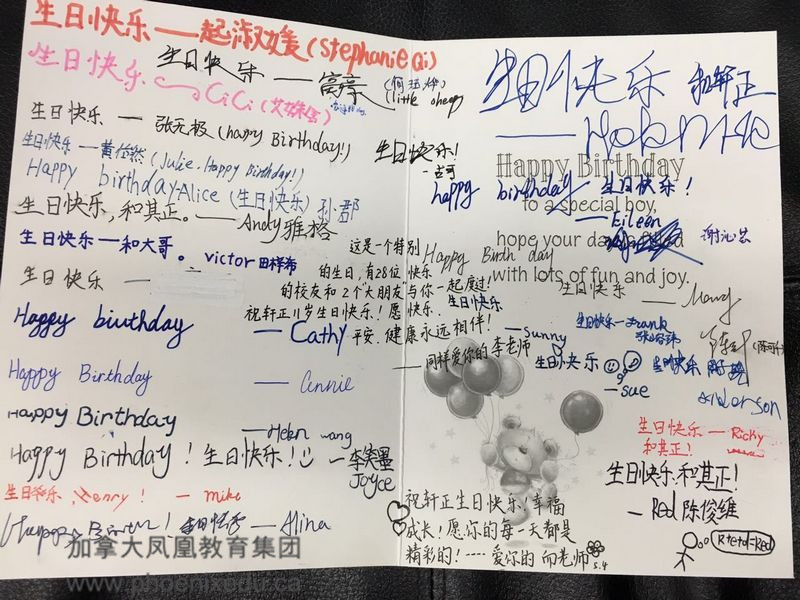 生日快乐——起淑媛(Stephanie Qi)
生日快乐
CiCi
生日快乐——
(little sheep)
生日快乐 — 张无极(happy Birthday!)
生日快乐—黄
(Julie. Happy Birthday!)
Happy birthday-Alice (生日快乐) 孙郡
生日快乐,和其正。——Andy雅格
生日快乐—和大哥。 victor 田梓希
生日快乐 —
Happy birthday — Cathy
Happy Birthday — Annie
Happy Birthday
—Helen wang
Happy Birthday! 生日快乐! —李笑墨
Joyce
生日快乐, Henry! — mike
生日快乐 — Alina
生日快乐!
这是一个特别
的生日,有28位 快乐
的校友和2个"大朋友"与你一起度过!
祝轩正11岁生日快乐!愿快乐.
平安.健康永远相伴!
—同样爱你的李老师
生日快乐 和轩正
Happy Birthday
to a special boy,
hope your day is filled
with lots of fun and joy.
happy birthday
生日快乐!
—Eileen
谢沁芸
Happy Birth day
生日快乐
—sunny
生日快乐 —
生日快乐—Frank
生日快乐
—sue
生日快乐
Anderson
生日快乐 — Ricky
和其正!
生日快乐.和其正!
—Red 陈俊维
Red
祝轩正生日快乐!幸福
成长!愿你的每一天都是
精彩的!----爱你的 而老师
5.4
加拿大凤凰教育集团
www.phoenixedu.ca